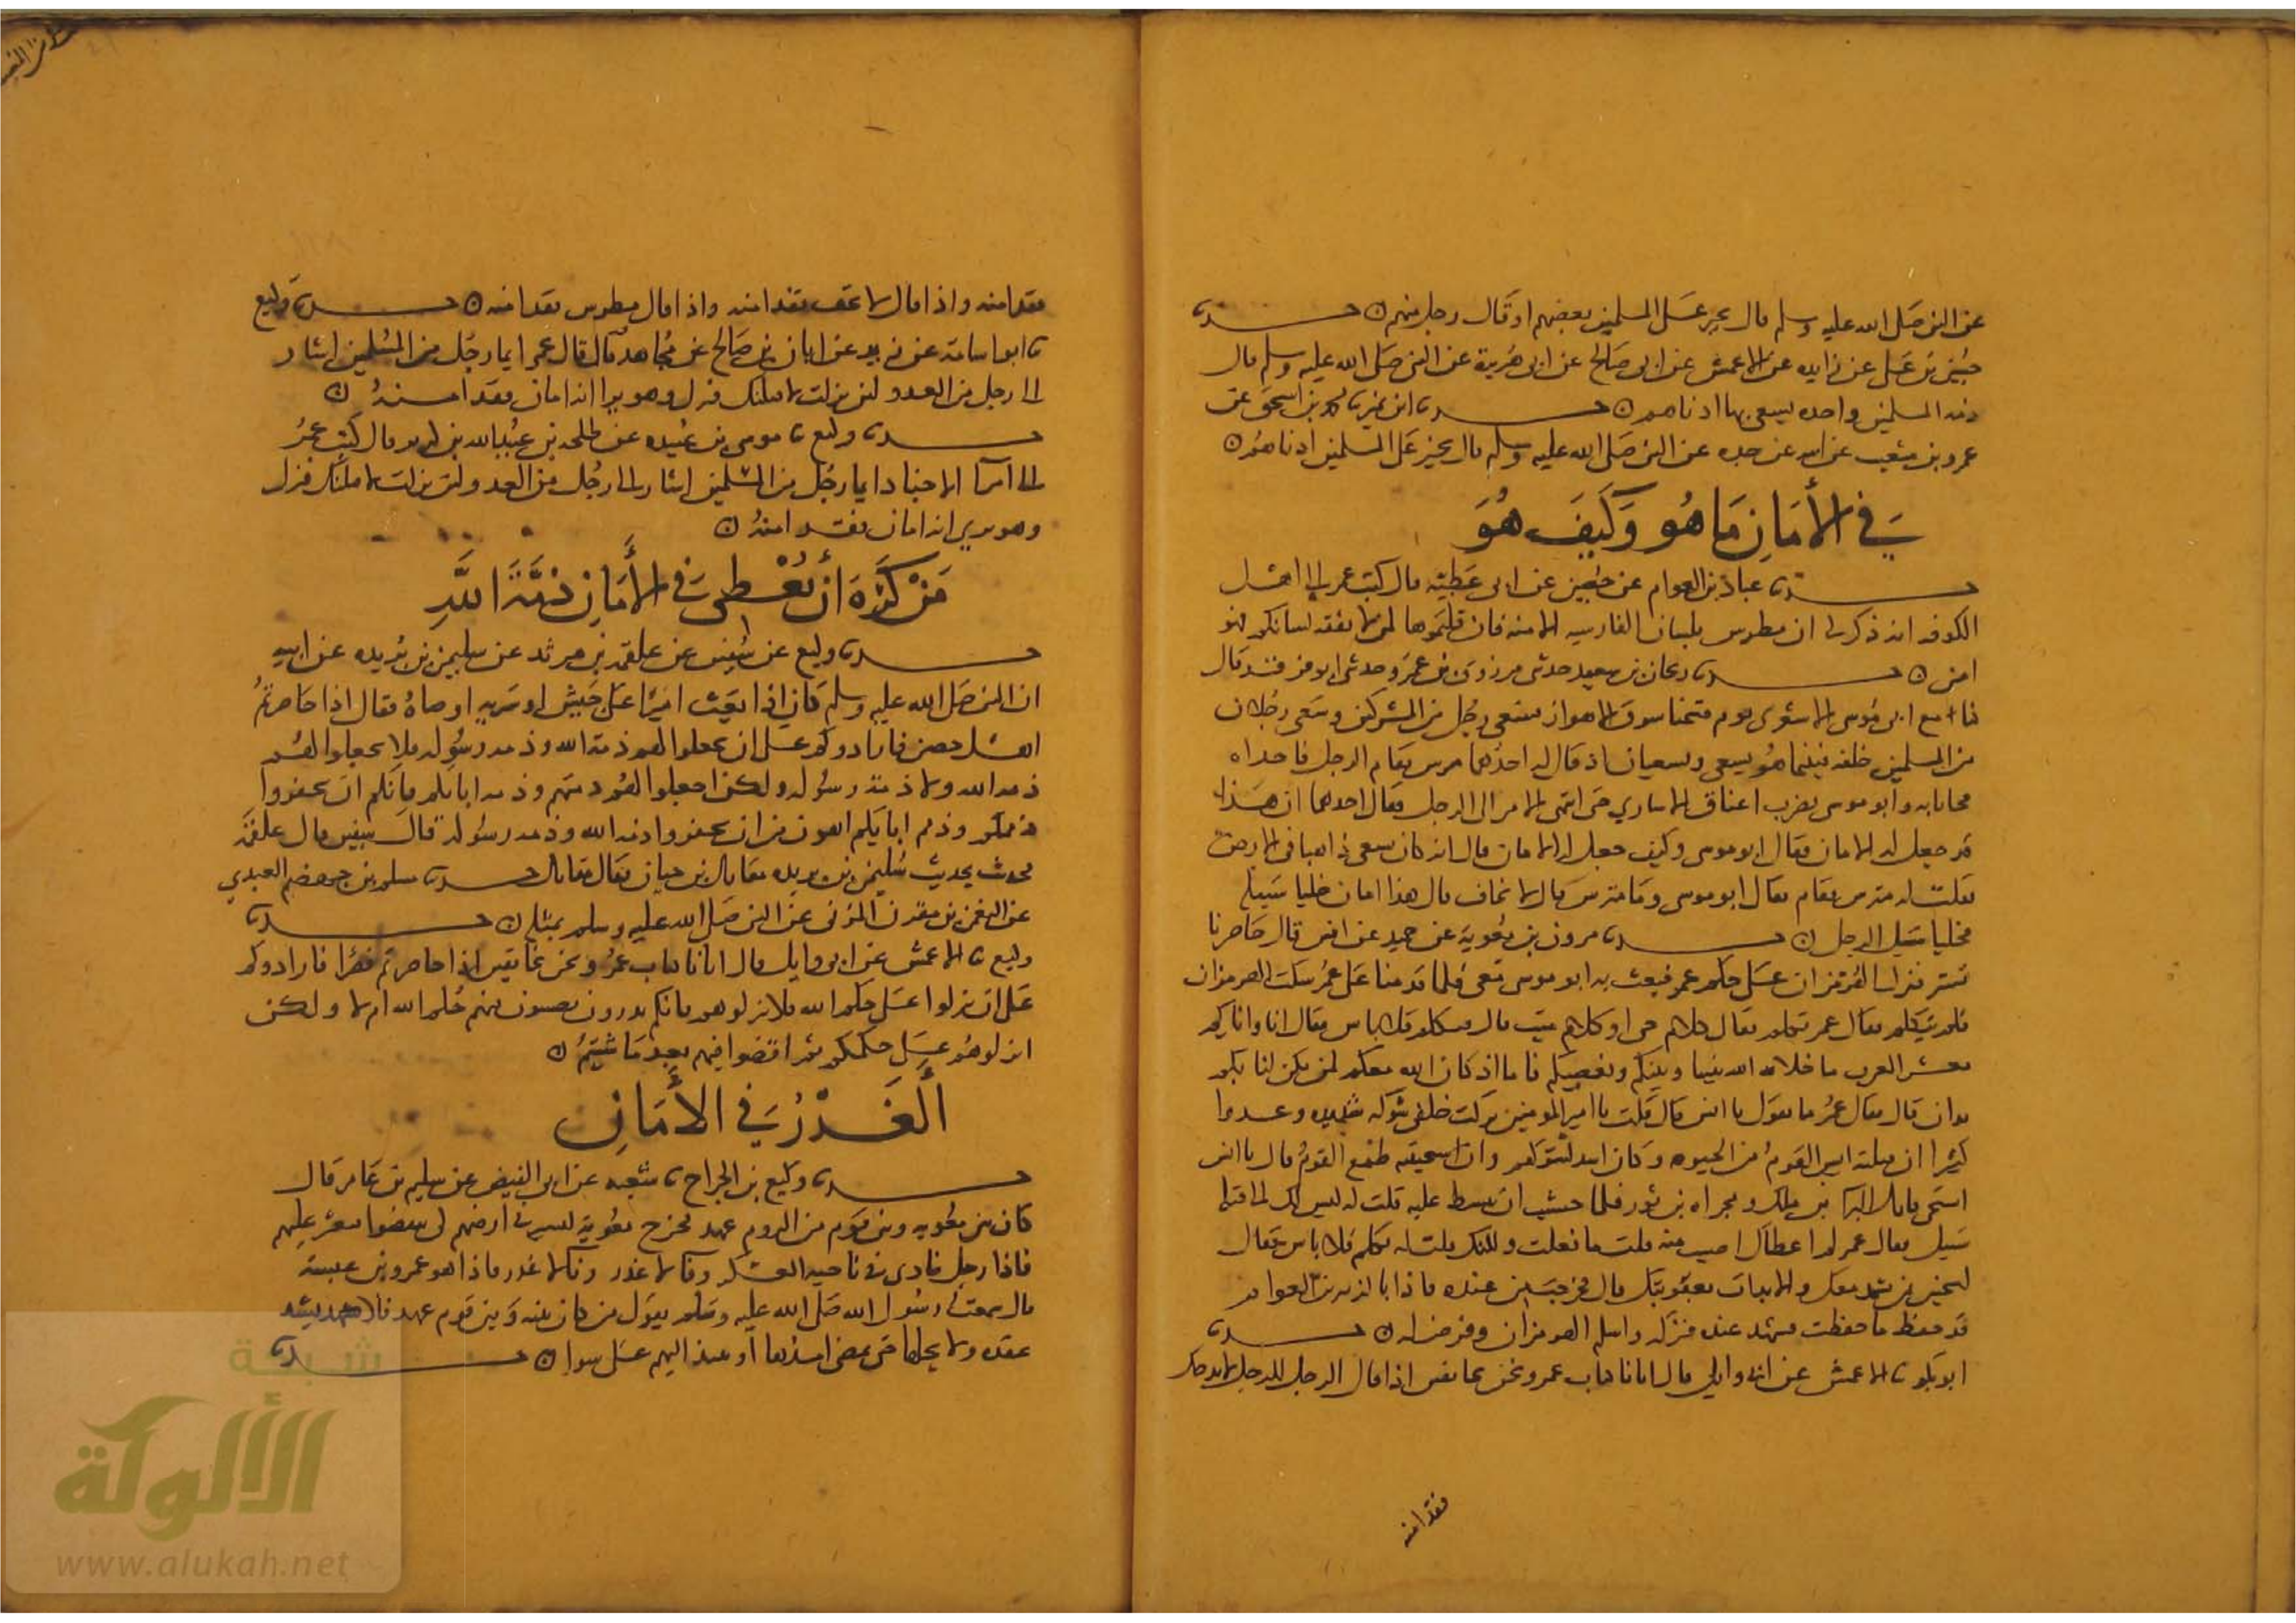 عن النبي صلى الله عليه وسلم قال يجير على المسلمين بعضهم او قال رجل منهم حدثنا
حسين بن علي عن زايده عن الاعمش عن ابي صالح عن ابي هريرة عن النبي صلى الله عليه وسلم قال
ذمه المسلمين واحده يسعى بها ادناهم حدثنا ابن نمير نا محمد بن اسحق عن
عمرو بن شعيب عن ابيه عن جده عن النبي صلى الله عليه وسلم قال يجيز على المسلمين ادناهم
في الأمان ما هو وكيف هو
حدثنا عباد بن العوام عن حصين عن ابي عطيه قال كتب عمر الى اهل
الكوفه انه ذكر لي ان مطرس بلسان الفارسيه الامنه فان قلتموها لمن لا يفقه لسانكم فهو
امن حدثنا ريحان بن سعيد حدثني مرزوق بن عمرو حدثني ابو فرقد قال
كنا مع ابي موسى الاشعري يوم فتحنا سوق الاهواز فسعى رجل من المشركين وسعى رجلان
من المسلمين خلفه فبينما هو يسعى ويسعيان اذ قال له احدهما مترس فقام الرجل فاخذاه
فجاءا به وابو موسى يضرب اعناق الاسارى حتى انتهى الامر الى الرجل فقال احدهما ان هذا
قد جعل له الامان فقال ابو موسى وكيف جعل له الامان قال انه كان يسعى ذاهبا في الارض
فقلت له مترس فقام فقال ابو موسى وما مترس قال لا تخاف قال هذا امان خليا سبيله
فخليا سبيل الرجل حدثنا مرون بن معوية عن حميد عن انس قال حاصرنا
تستر فنزل الهرمزان على حكم عمر فبعث به ابو موسى معي فلما قدمنا على عمر سكت الهرمزان
فلم يتكلم فقال عمر تكلم فقال كلام حي او كلام ميت قال تكلم فلا باس فقال انا واياكم
معشر العرب ما خلا الله بيننا وبينكم فاما اذ كان الله معكم لم يكن لنا بكم
يدان قال فقال عمر ما تقول يا انس قال قلت يا امير المومنين تركت خلفي شوكه شديده وعددا
كثيرا ان قتلته ايس القوم من الحيوه وكان اشد لشوكتهم وان استحييته طمع القوم قال يا انس
استحي قاتل البرا بن ملك ومجزاه بن ثور فلما خشيت ان يبسط عليه قلت له ليس لك الى قتله
سبيل فقال عمر لم اعطاك اصبت منه قلت ما فعلت ولكنك قلت له تكلم فلا باس فقال
لتجيئن بمن يشهد معك والا بدات بعقوبتك قال فخرجت من عنده فاذا بالزبير بن العوام
قد حفظ ما حفظت فشهد عنده فتركه واسلم الهرمزان وفرض له حدثنا
ابو بكر نا الاعمش عن ابي وايل قال اتانا كتاب عمر ونحن بخانقين اذا قال الرجل للرجل لا تدحل
فقد امنه
فقد امنه واذا قال لا تخف فقد امنه واذا قال مطرس فقد امنه حدثنا وكيع
نا ابو اسامة عن عن ابان بن صالح عن مجاهد قال قال عمر ايما رجل من المسلمين اشار
الى رجل من العدو لئن نزلت لاقتلنك فنزل وهو يرا انه امان فقد امنه
حدثنا وكيع نا موسى بن عبيده عن طلحه بن عبيد الله بن كريز قال كتب عمر
الى امرا الاجناد ايما رجل من المسلمين اشار الى رجل من العدو لئن نزلت لاقتلنك فنزل
وهو يرى انه امان فقد امنه
من كره أن يعطى في الأمان ذمة الله
حدثنا وكيع عن سفين عن علقمه بن مرثد عن سليمن بن بريده عن ابيه
ان النبي صلى الله عليه وسلم كان اذا بعث اميرا على جيش او سريه اوصاه فقال اذا حاصرتم
اهل حصن فارادوكم على ان تجعلوا لهم ذمة الله وذمه رسوله فلا تجعلوا لهم
ذمه الله ولا ذمة رسوله ولكن اجعلوا لهم ذمتكم وذمه ابائكم فانكم ان تخفروا
ذممكم وذمم ابايكم اهون من ان تخفروا ذمه الله وذمه رسوله قال سفين قال علقمه
فحدثت بحديث سليمن بن بريده مقاتل بن حيان فقال مقاتل حدثنا مسلم بن هيصم العبدي
عن النعمن بن مقرن المزني عن النبي صلى الله عليه وسلم بمثله حدثنا
وكيع نا الاعمش عن ابي وايل قال اتانا كتاب عمر ونحن بخانقين اذا حاصرتم قصرا فارادوكم
على ان ينزلوا على حكم الله فلا تنزلوهم فانكم لا تدرون تصيبون فيهم حكم الله ام لا ولكن
انزلوهم على حكمكم ثم اقضوا فيهم بعد ما شئتم
ألغدر في الأمان
حدثنا وكيع بن الجراح نا شعبه عن ابي الفيض عن سليم بن عامر قال
كان بين معويه وبين قوم من الروم عهد فخرج معوية يسير في ارضهم كي ينقضوا فيغير عليهم
فاذا رجل ينادي في ناحيه العسكر وفا لا غدر وفا لا غدر فاذا هو عمرو بن عبسة
قال سمعت رسول الله صلى الله عليه وسلم يقول من كان بينه وبين قوم عهد فلا يشد
عقده ولا يحلها حتى يمضي امدها او ينبذ اليهم على سوا حدثنا
شبكة
الألوكة
www.alukah.net